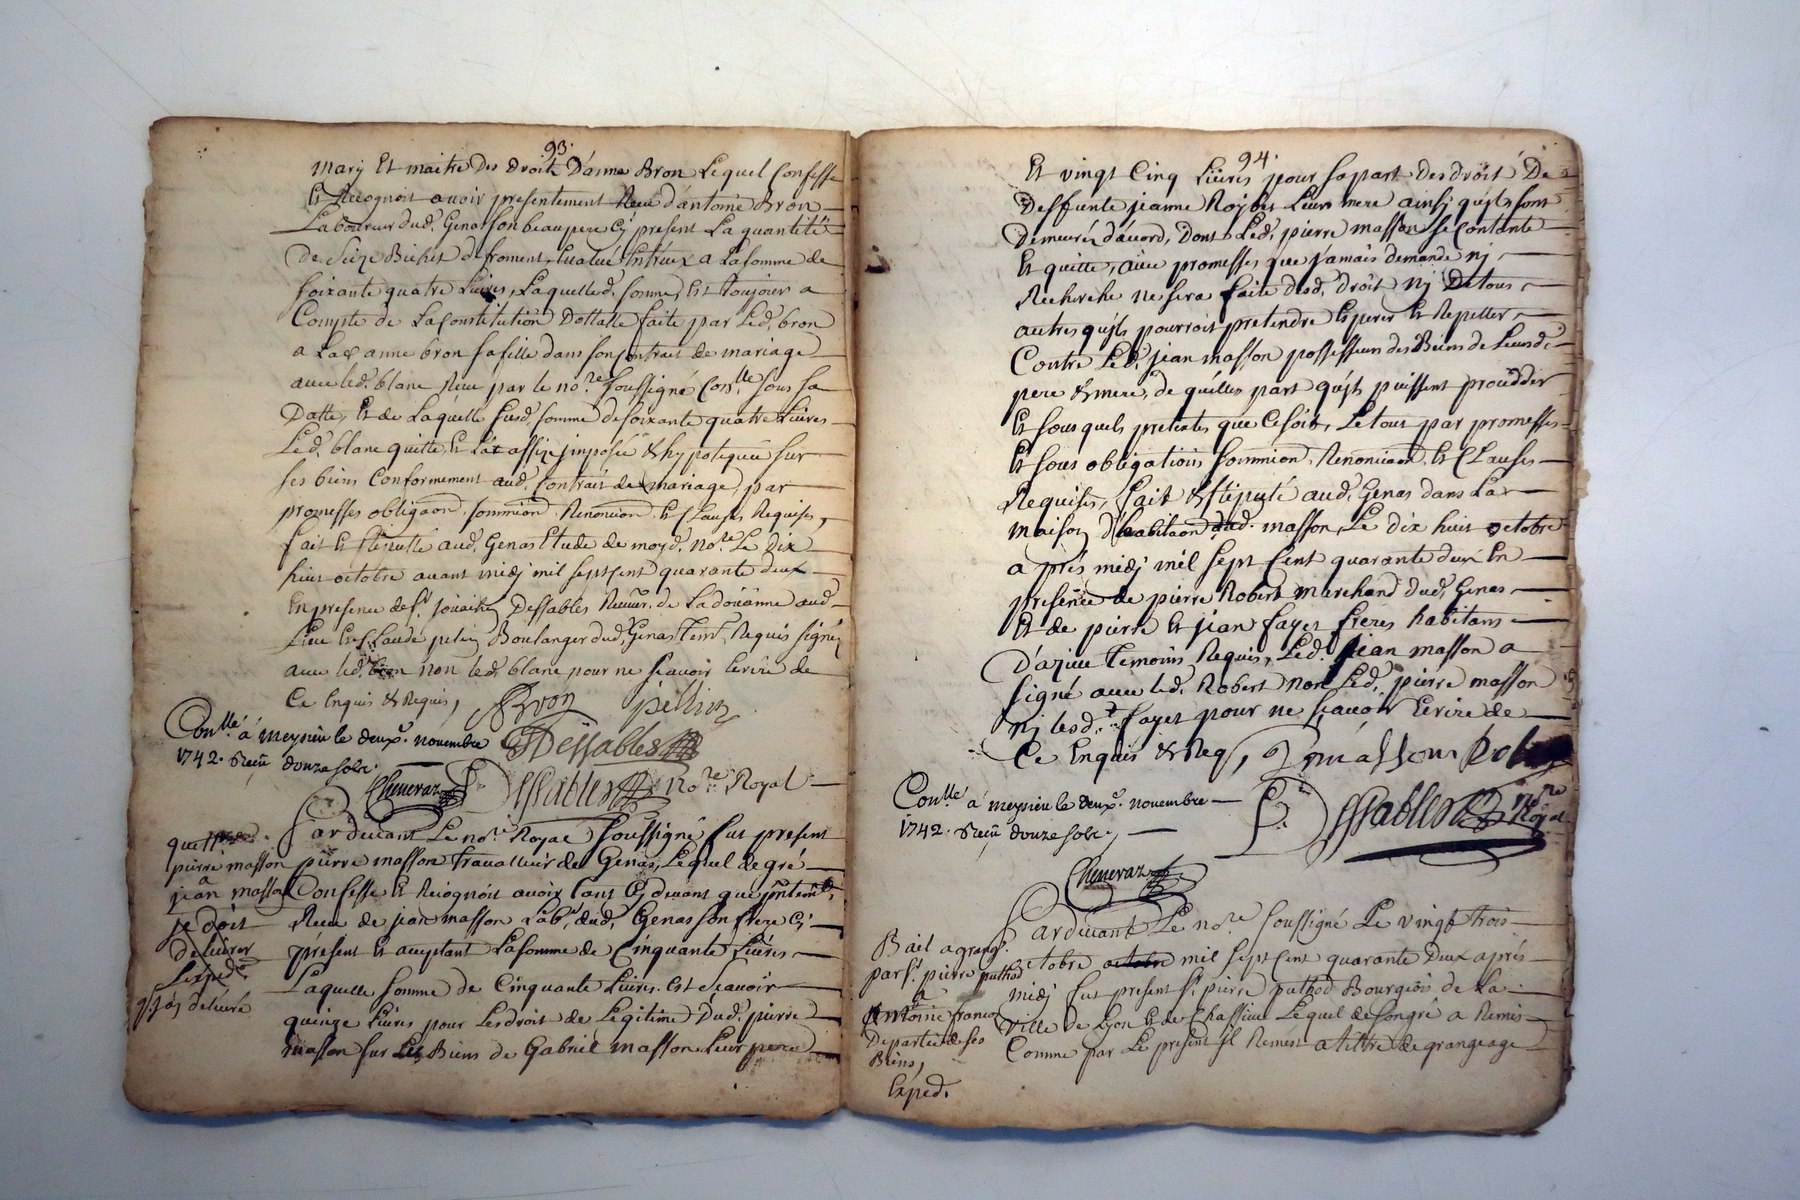 93.
mary Et maitre Des droits D'anne Bron Lequel Confesse
Et Recognoit avoir presentement Receu d'antoine Bron
Laboureur dud. Genas son beaupere Cy present La quantité
De Seize Bichet de froment, Evalué Entreux a La somme de
soixante quatre Livres, Laquelled. somme, Est toujour a
Compte de La Constitution Dottalle faite par Led. bron
a Lad. anne bron sa fille dans son Contrait de mariage
avec led. blanc Receu par le no.re soussigné Con.lle sous sa
Datte, Et de Laquelle susd. somme de soixante quatre Livres
Led. blanc quitte, Et L'at assize jmposée & hypotequée sur
ses biens Conformement aud. Contrait de mariage, par
promesses obligaon. sommion. Renonciaon. Et Clauses Requises,
fait Et Stipullé aud. Genas Etude de moyd. No.re Le Dix
huit octobre avant midj mil sept Cent quarante deux
En presence de s.r Dessables Receveur de La doüanne aud.
Lieu Et Claude pelin Boulanger dud. Genas tem. Requis signéz
avec led. bron non led. blanc pour ne scavoir Ecrire de
Ce Enquis & Requis,
Bron pellin
Con.llé à meysieu le deux.e novembre
Dessables
1742. Reçu douze sols.
Cheneraz
Dessables no.re Royal
Pardevant Le no.re Royal soussigné fut present
quitt.ce
pierre masson
pierre masson travallieur de Genas, Lequel de gré
a
jean masson
Confesse Et Recognoit avoir tant Cy devant que pntem.t
je doit
Receu de jean masson Lab.r dud. Genas son frere Cy
delivrer
present Et acceptant La somme de Cinquante Livres
L'exped.on
Laquelle somme de Cinquante Livres. est scavoir
delivré
quinze Livres pour Les droit de Legitime Dud. pierre
masson sur Les Biens de Gabriel masson Leur pere
94.
Et vingt Cinq Livres pour sa part des droit De
Deffunte jeanne Roybet Leur mere ainsj qu'jls sont
Demeurés d'accord, Dont Led. pierre masson se Contante
Et quitte, avec promesses que jamais demande nj
Recherche ne sera faite desd. droit nj De tous
autres qu'jls pourroit pretendre Esperer Et Repetter,
Contre Led. jean masson possesseur des Biens de Leursd.
pere & mere, de quelles part qu'jls puissent proceder
Et sous quels pretextes que Ce soit, Le tout par promesses
Et sous obligations sommion. Renonciaon. Et Clauses
Requises, fait & stipulé aud. Genas dans La
maison D'habitaon dud. masson, Le dix huit octobre
après midj mil sept Cent quarante deux En
presence de pierre Robert marchand dud. Genas
Et de pierre Et jean fayet freres habitans
D'azieu temoins Requis, Led. jean masson a
signé avec led. Robert non Led. pierre masson
nj lesd. fayet pour ne scavoir Ecrire de
Ce Enquis & Req,
J masson Robert
Con.llé à meysieu le deux.e novembre
1742. Reçu douze sols.,
Dessables no.re Royal
Cheneraz
Pardevant Le no.re soussigné Le vingt trois
Bail a grang.
octobre octobre mil sept Cent quarante Deux après
par s.r pierre puthod
midj fut present s.r pierre puthod Bourgeois de La
a
Antoine francoz
Ville de Lyon Et de Chassieu Lequel de son gré a Remis
De partie de ses
Comme par Le present jl Remest a tittre de grangeage
Biens,
Exped.